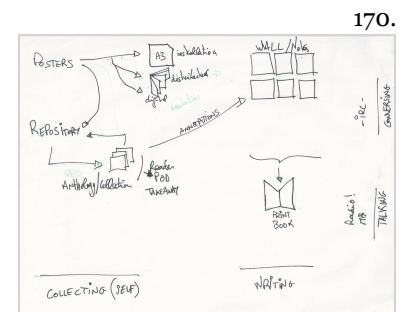 170.
POSTERS
A3
installation
distributed
digital
WALL/Notes
REPOSITORY
ANNOTATIONS
Anthology/Collection
Reader
POD
TAKEAWAY
PRINT
BOOK
- IRC -
CONVERSING
Radio!
TALKING
COLLECTING (SELF)
WRITING